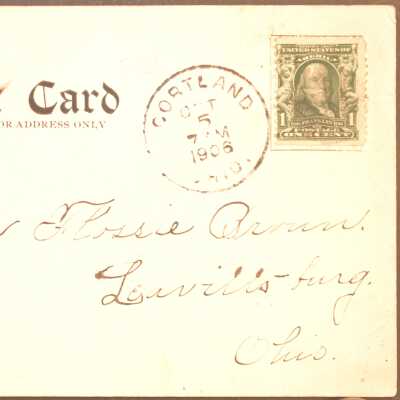 Card
OR ADDRESS ONLY
CORTLAND
OCT
5
7 AM
1906
UNITED STATES OF
AMERICA
1 FRANKLIN 1
POSTAGE
ONE CENT
Flossie Brown.
Leavittsburg.
Ohio.